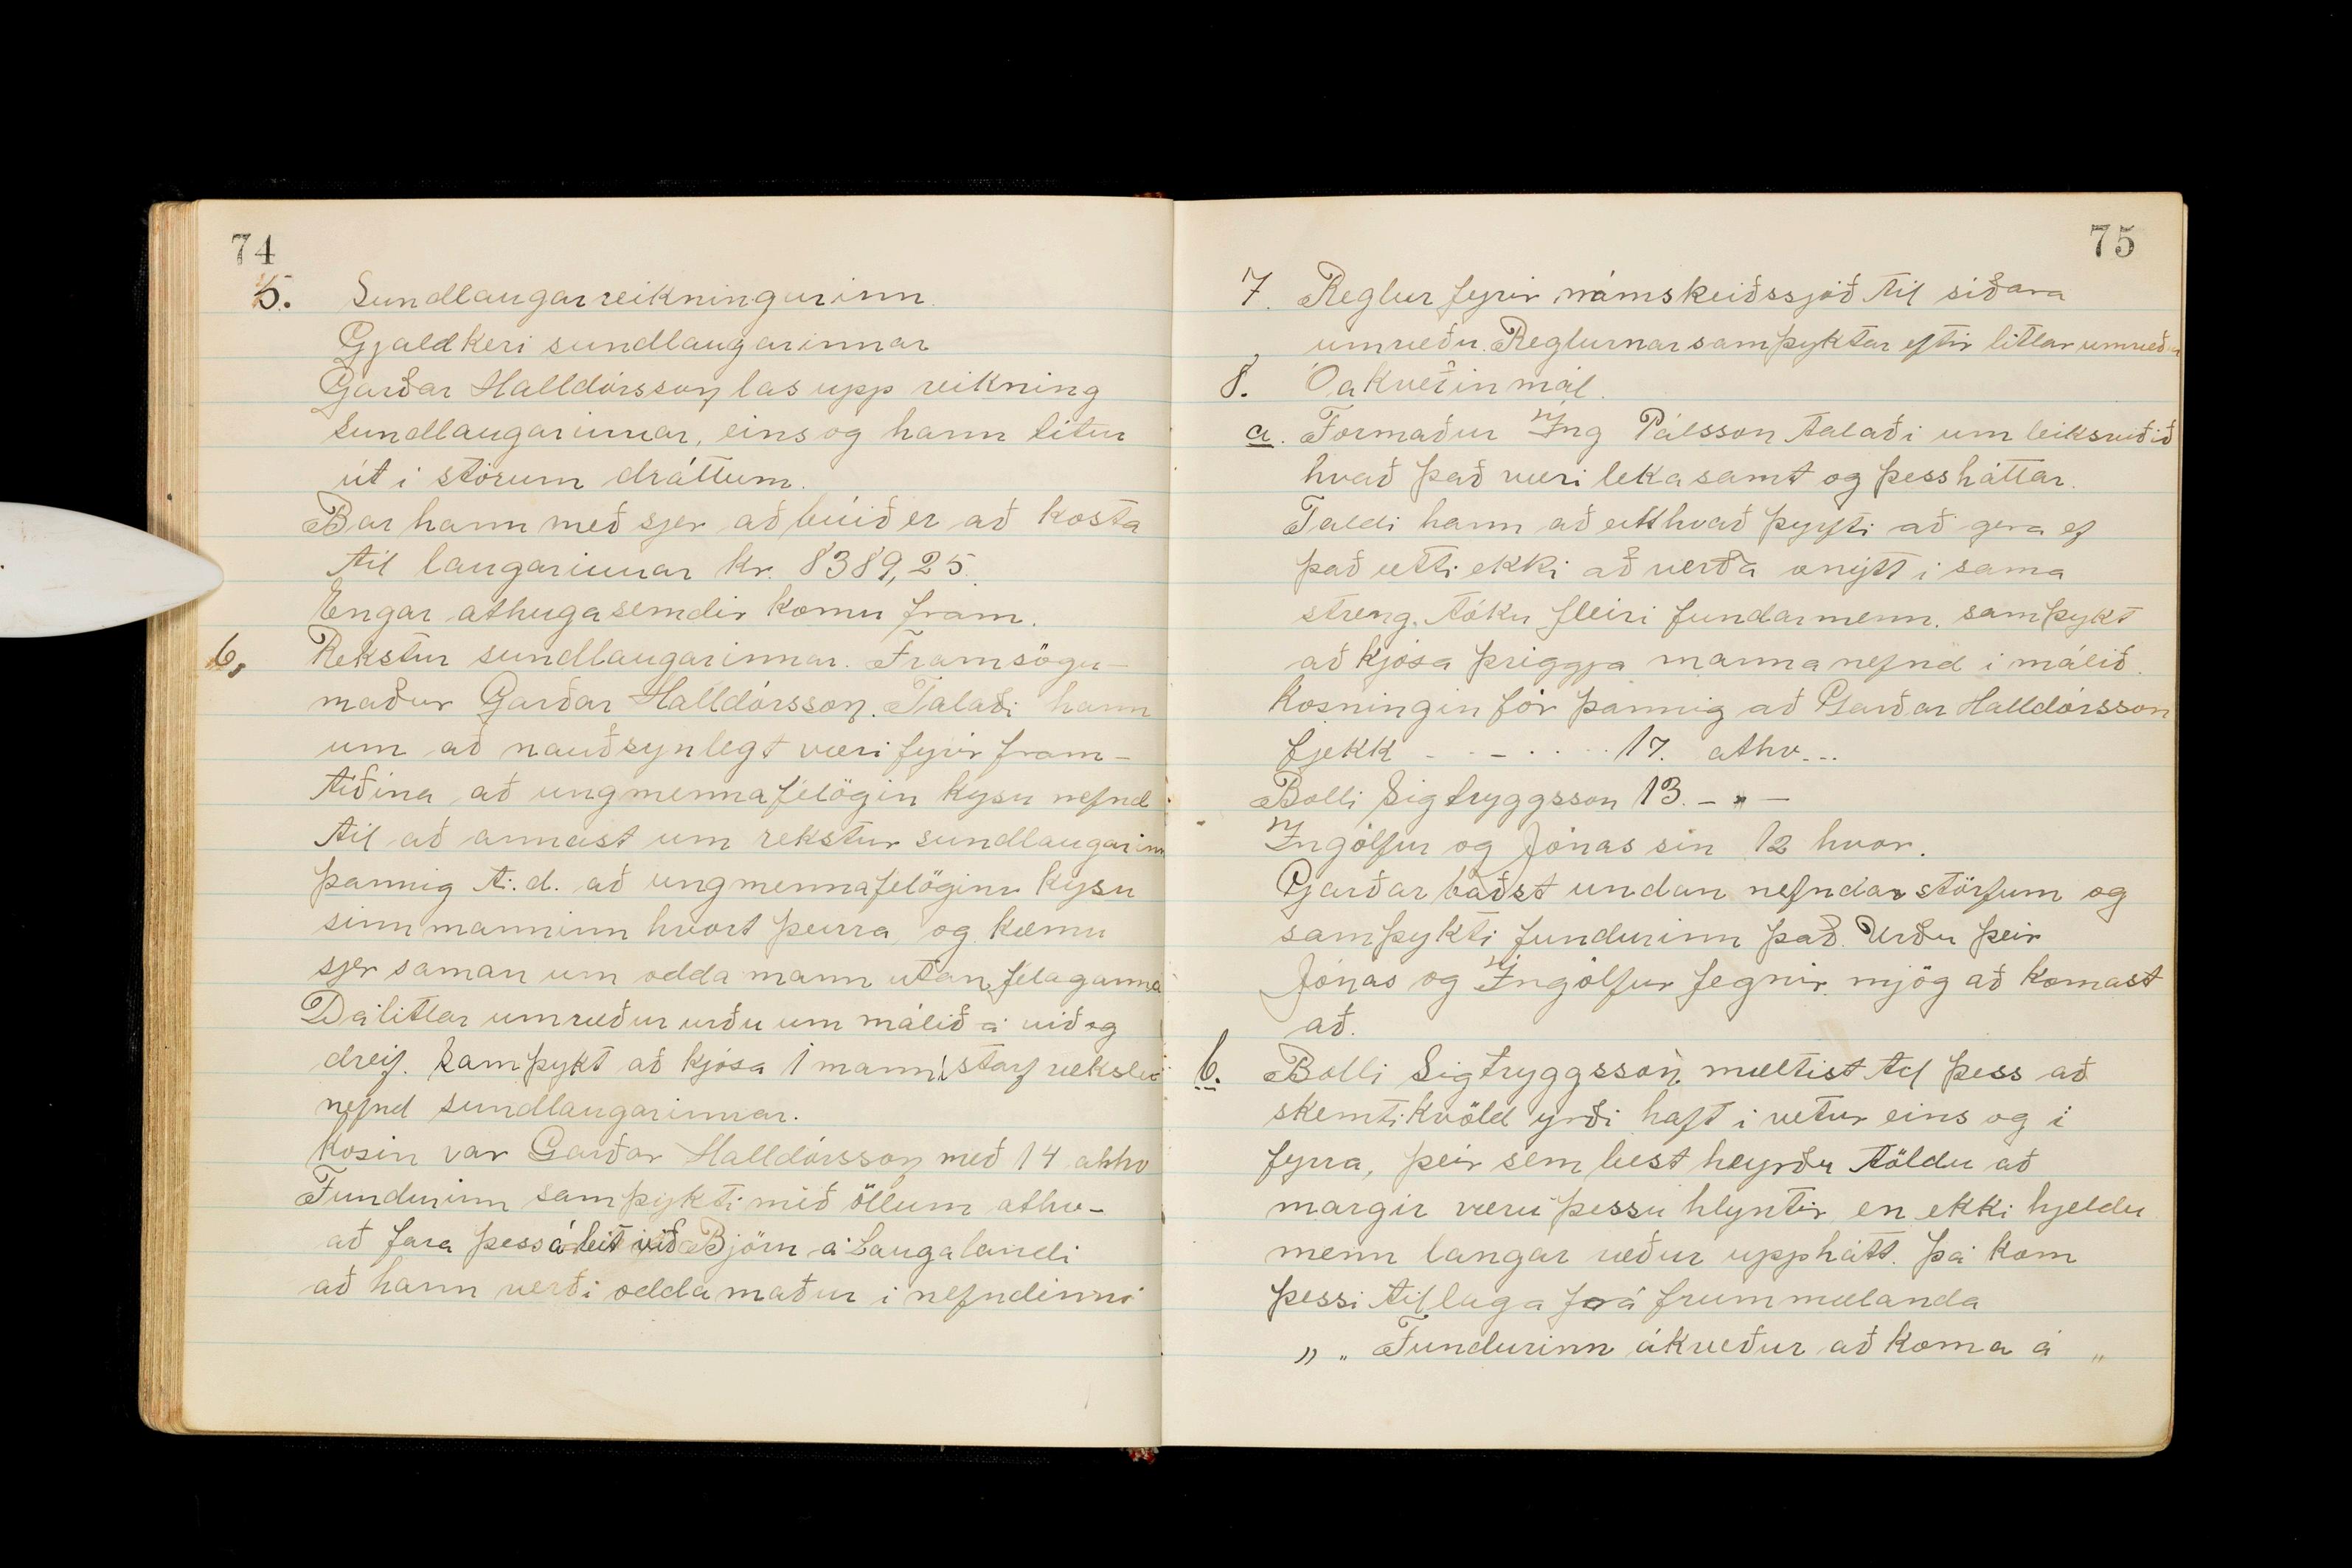 74
5. Sundlaugarreikningurinn.
Gjaldkeri sundlaugarinnar
Garðar Halldórsson las upp reikning
Sundlaugarinnar, eins og hann litur
út i stórum dráttum.
Bar hann með sjer að búið er að kosta
til laugarinnar kr. 8389,25.
Engar athugasemdir komu fram.
6, Rekstur sundlaugarinnar. Framsögu-
maður Garðar Halldórsson. Talaði hann
um að nauðsynlegt væri fyrir fram-
tíðina að ungmennafélögin kysu nefnd
til að annast um rekstur sundlaugarinn
þannig t.d. að ungmennafélöginn kysu
sinn manninn hvort þeirra og kæmu
sjer saman um oddamann utan félaganna
Dálitlar umræður urðu um málið á við og
dreif. Samþykt að kjósa 1 mann i starfræksl
nefnd sundlaugarinnar.
Kosin var Garðar Halldórsson með 14 athv
Fundurinn samþykti með öllum athv-
að fara þess á leit við Björn á Laugalandi
að hann verði oddamaður i nefndinni
75
7. Reglur fyrir námskeiðssjóð til síðara
umræðu. Reglurnar samþyktar eftir litlar umræður
8. Óákveðin mál.
a. Formaður Ing Pálsson talaði um leiksviðið
hvað það væri lekasamt og þessháttar.
Taldi hann að eitkhvað þyrfti að gera ef
það ætti ekki að verða ónýtt i sama
streng. tóku fleiri fundarmenn. samþykt
að kjósa þriggja manna nefnd i málið.
Kosningin fór þannig að Garðar Halldórsson
fjekk - - - . . . 17. athv...
Bolli Sigtryggsson 13. - „ -
Ingólfur og Jónas sín 12 hvor.
Garðar baðst undan nefndarstörfum og
samþykti fundurinn það. Urðu þeir
Jónas og Ingólfur fegnir mjög að komast
að.
b. Bolli Sigtryggsson mæltist til þess að
skemtikvöld yrði haft i vetur eins og i
fyrra, þeir sem best heyrðu töldu að
margir væru þessu hlyntir en ekki hjeldu
menn langar ræður upphátt. Þá kom
þessi tillaga frá frummælanda
„ „ Fundurinn ákveður að koma á „